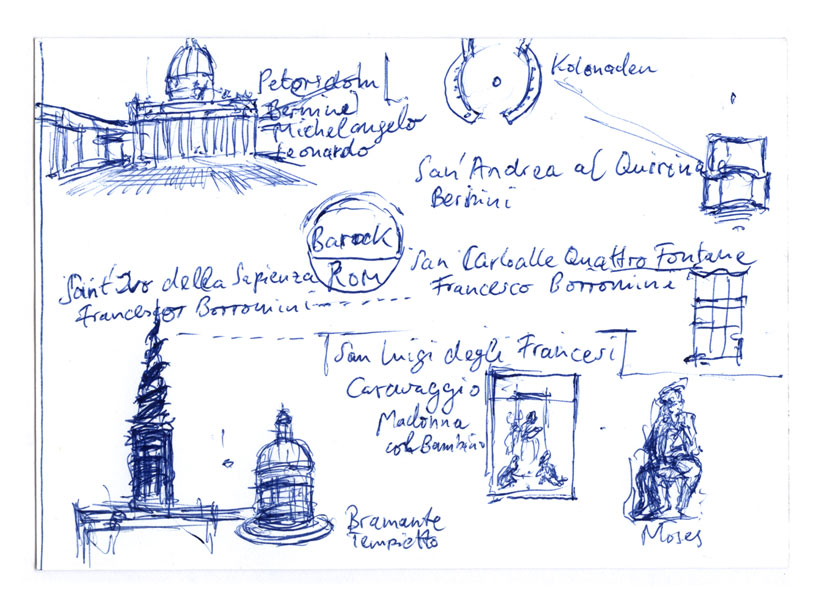 Petersdom
Bernini
Michelangelo
Leonardo
Kolonaden
San' Andrea al Quirinale
Bernini
Barock
Rom
San Carloalle Quattro Fontane
Francesco Borromini
Sant' Ivo della Sapienza
Francesco Borromini
San Luigi degli Francesi
Caravaggio
Madonna
col Bambino
Bramante
Tempietto
Moses